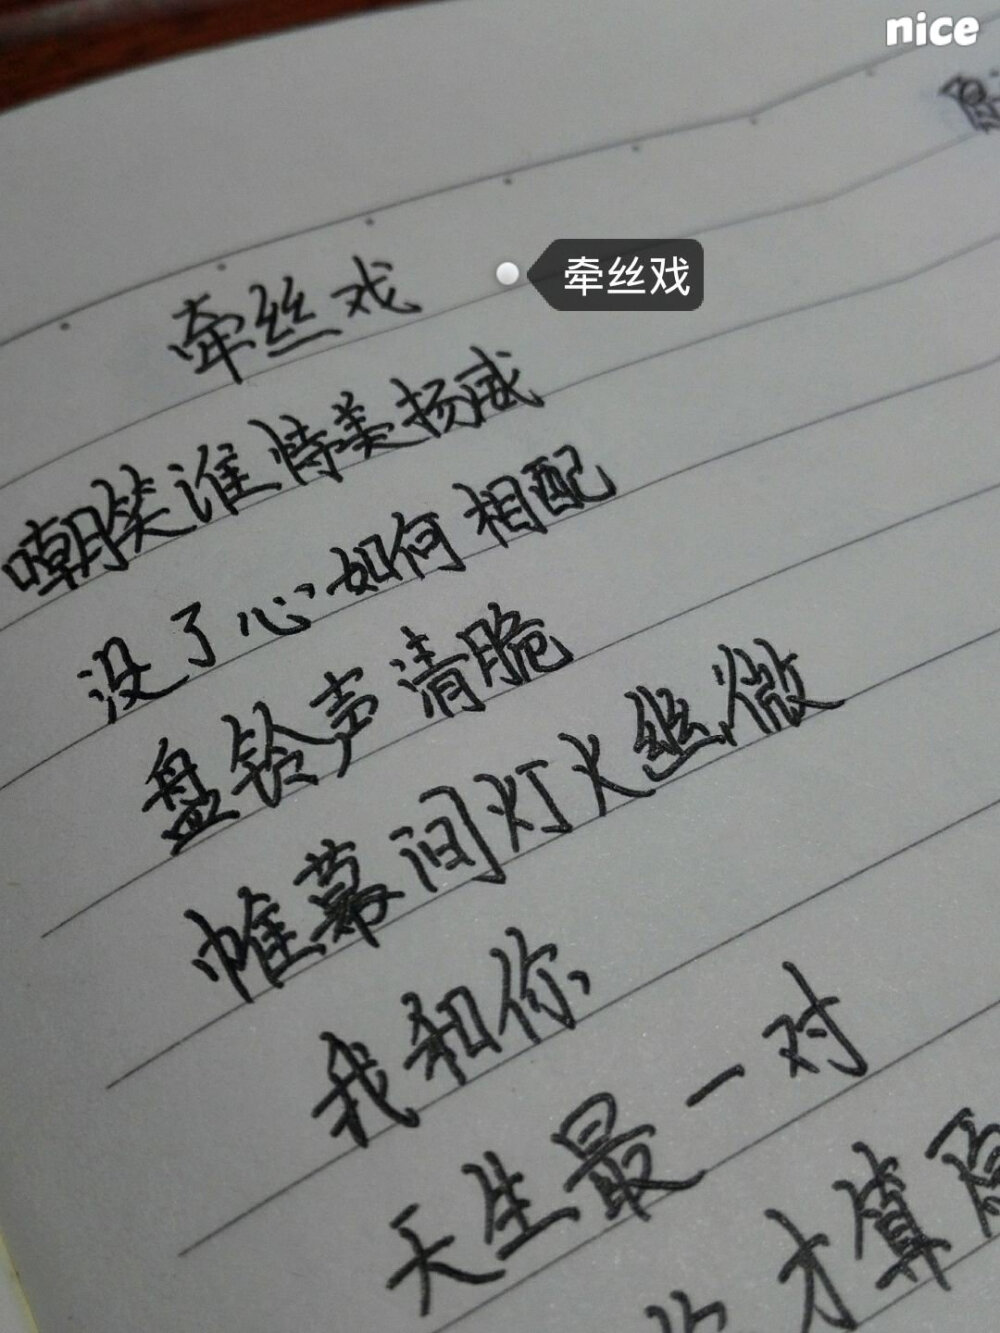 nice
牵丝戏
牵丝戏
嘲笑谁恃美扬威
没了心如何相配
盘铃声清脆
帷幕间灯火幽微
我和你
天生最一对
才算原